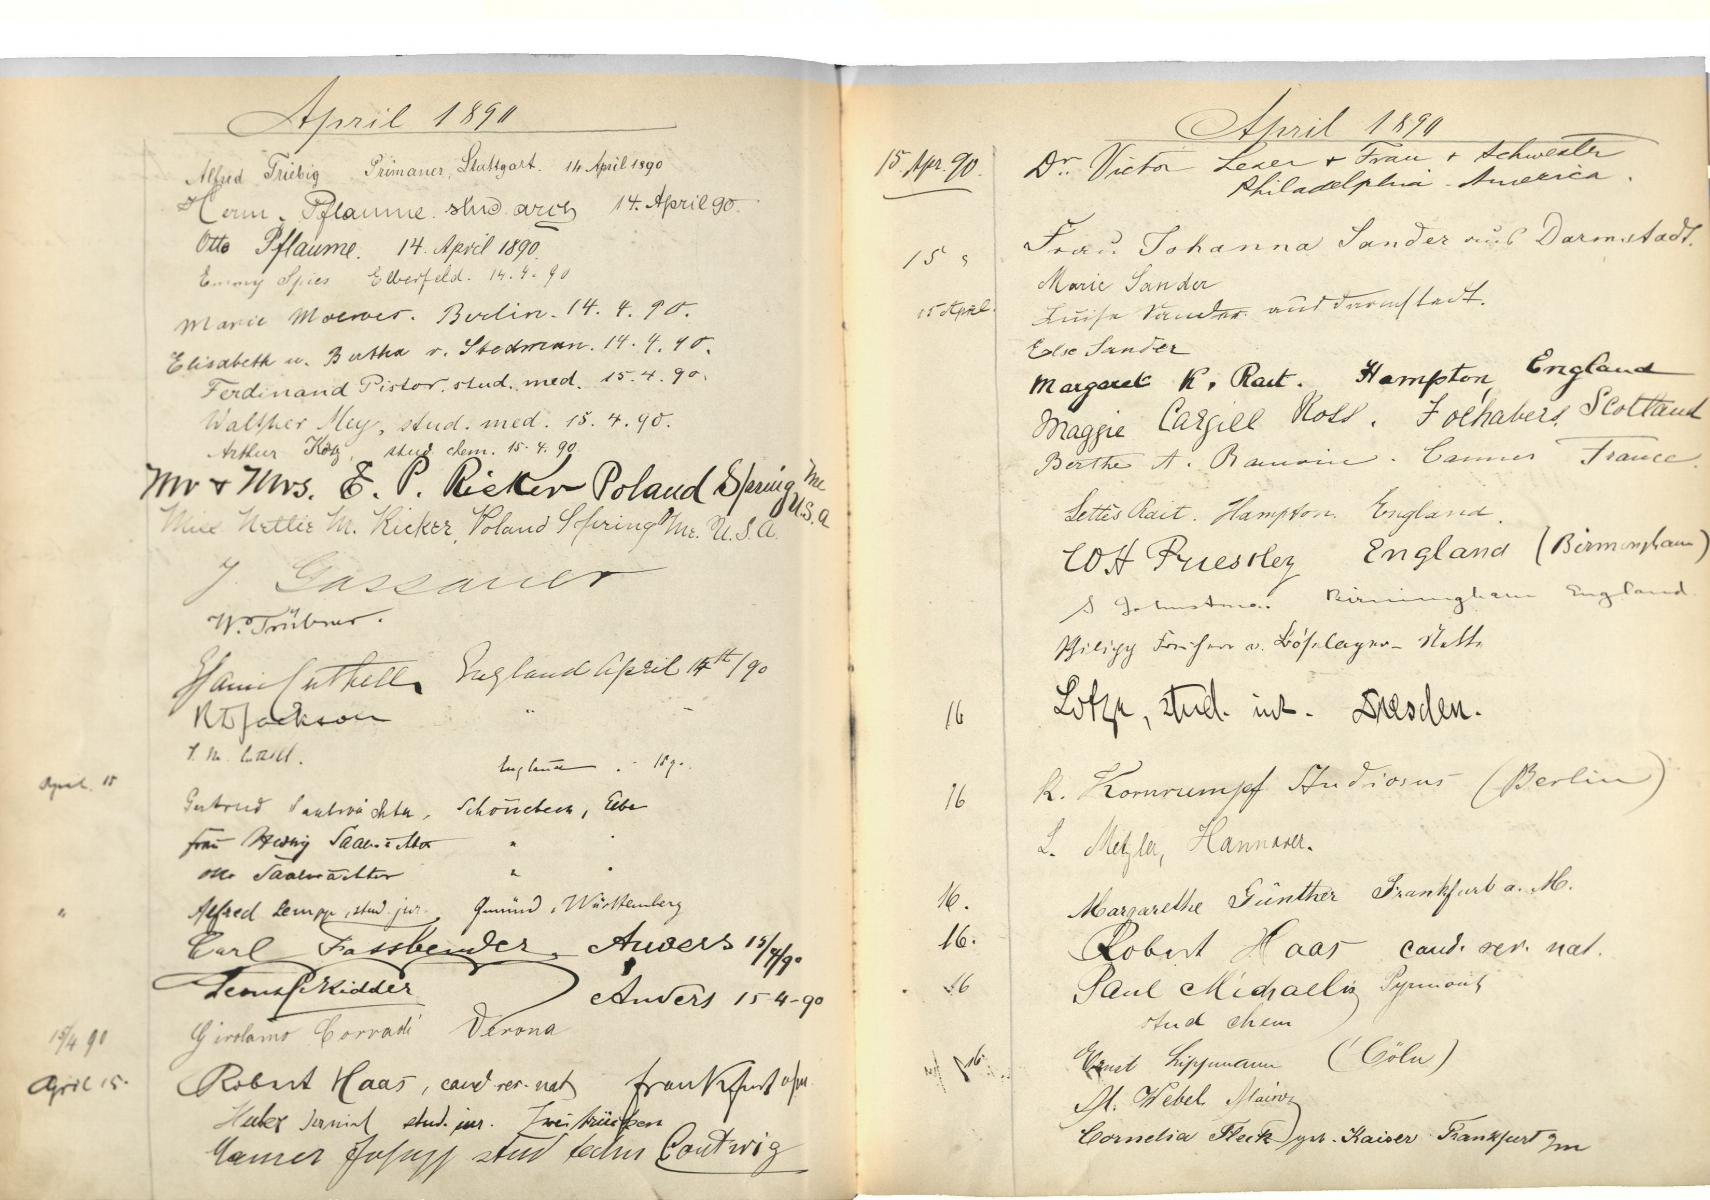 April 1890
Alfred Triebig Primaner, Stuttgart. 14 April 1890
Herm. Pflaume stud arch 14. April 90.
Otto Pflaume. 14. April 1890.
Emmy Spies Elberfeld. 14.4.90
Marie Berlin. 14. 4. 90.
Elisabeth u. Bertha v. Stedman. 14. 4. 90.
Ferdinand Pistor. stud. med. 15. 4. 90.
Walther Mey, stud. med. 15. 4. 90.
Arthur stud chem. 15. 4. 90
Mr & Mrs. E. P. Ricker Poland Spring Me
U.S.A
Miss Nettie M. Ricker, Poland Spring Me. U.S.A.
J Gassauer
W. Trübner.
England April 14th/90
R D Jackson " -
England 1890.
April 15
Gertrud Schönebeck, Elbe
Frau Hedwig Saalwächter "
Otto Saalwächter "
" Alfred Lempp, stud. jur. Gmünd, Württemberg
Carl Fassbender. Anvers 15/4/90
Kidder Anvers 15-4-90
15/4 90 Girolamo Corradi Verona
April 15. Robert Haas, cand. rer. nat Frankfurt a/m.
stud. jur. Zweibrücken
stud techn Contwig
April 1890
15. Apr. 90. Dr. Victor Leser & Frau & Schwester
Philadelphia. America.
15 " Frau Johanna Sander aus Darmstadt.
Marie Sander
15 April. Luise Sander aus Darmstadt.
Else Sander
Margaret K. Rait. Hampton, England
Maggie Cargill Ross. Fochabers, Scotland
Berthe A. Cannes France.
Lettis Rait. Hampton. England.
W H Priestley England (Birmingham)
S Johnstone. Birmingham England
v.
16 Lotze, stud. Dresden.
16 K. Kornrumpf Studiosus (Berlin)
L. Metzler, Hannover.
16. Margarethe Günther Frankfurt a. M.
16. Robert Haas cand. rer. nat.
16 Paul Michaelis Pyrmont
stud chem
16. Ernst Lippmann (Cöln)
M. Webel Mainz
Cornelia Fleck Kaiser Frankfurt